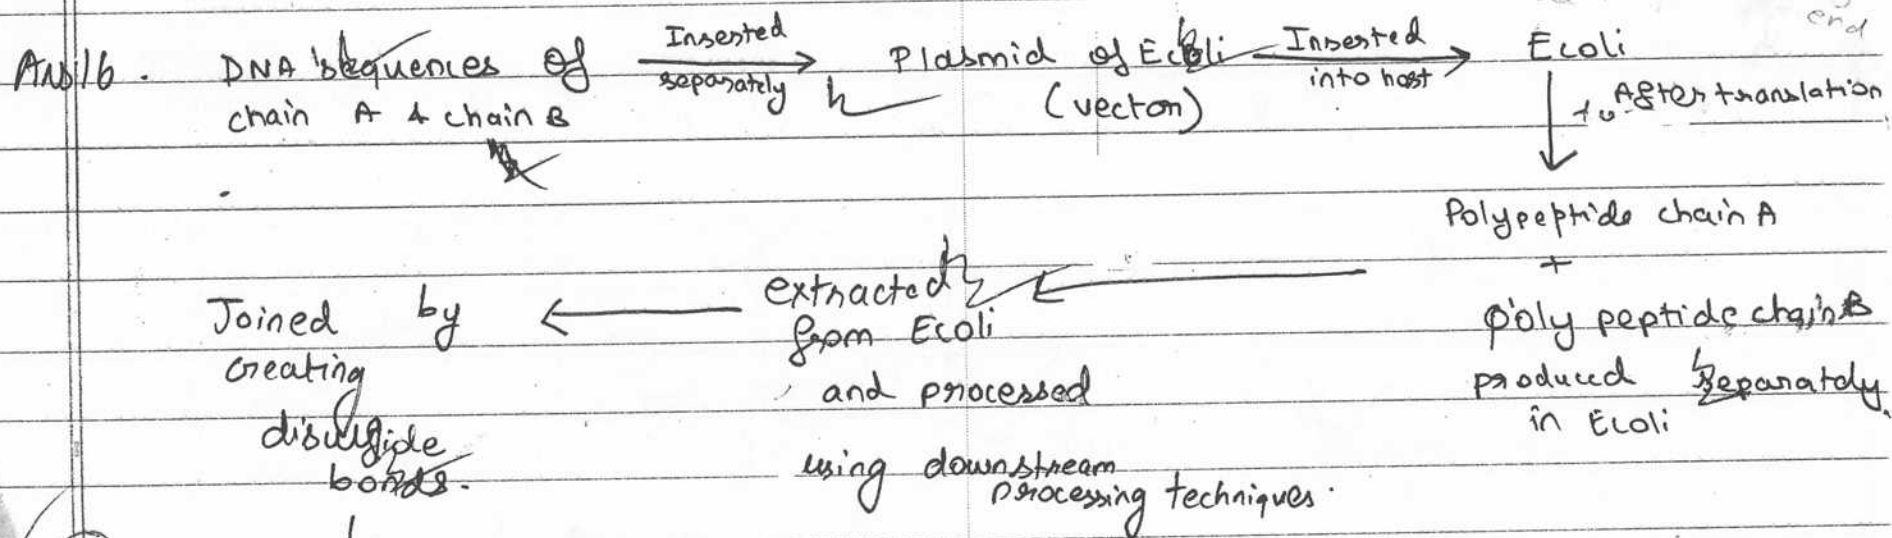 end
Ans16. DNA sequences of chain A & chain B
Inserted separately
Plasmid of Ecoli (vecton)
Inserted into host
Ecoli
After translation
Polypeptide chain A
+
poly peptide chain B
produced separately
in Ecoli
extracted
from Ecoli
and processed
using downstream
processing techniques.
Joined by
creating
disulfide
bonds.